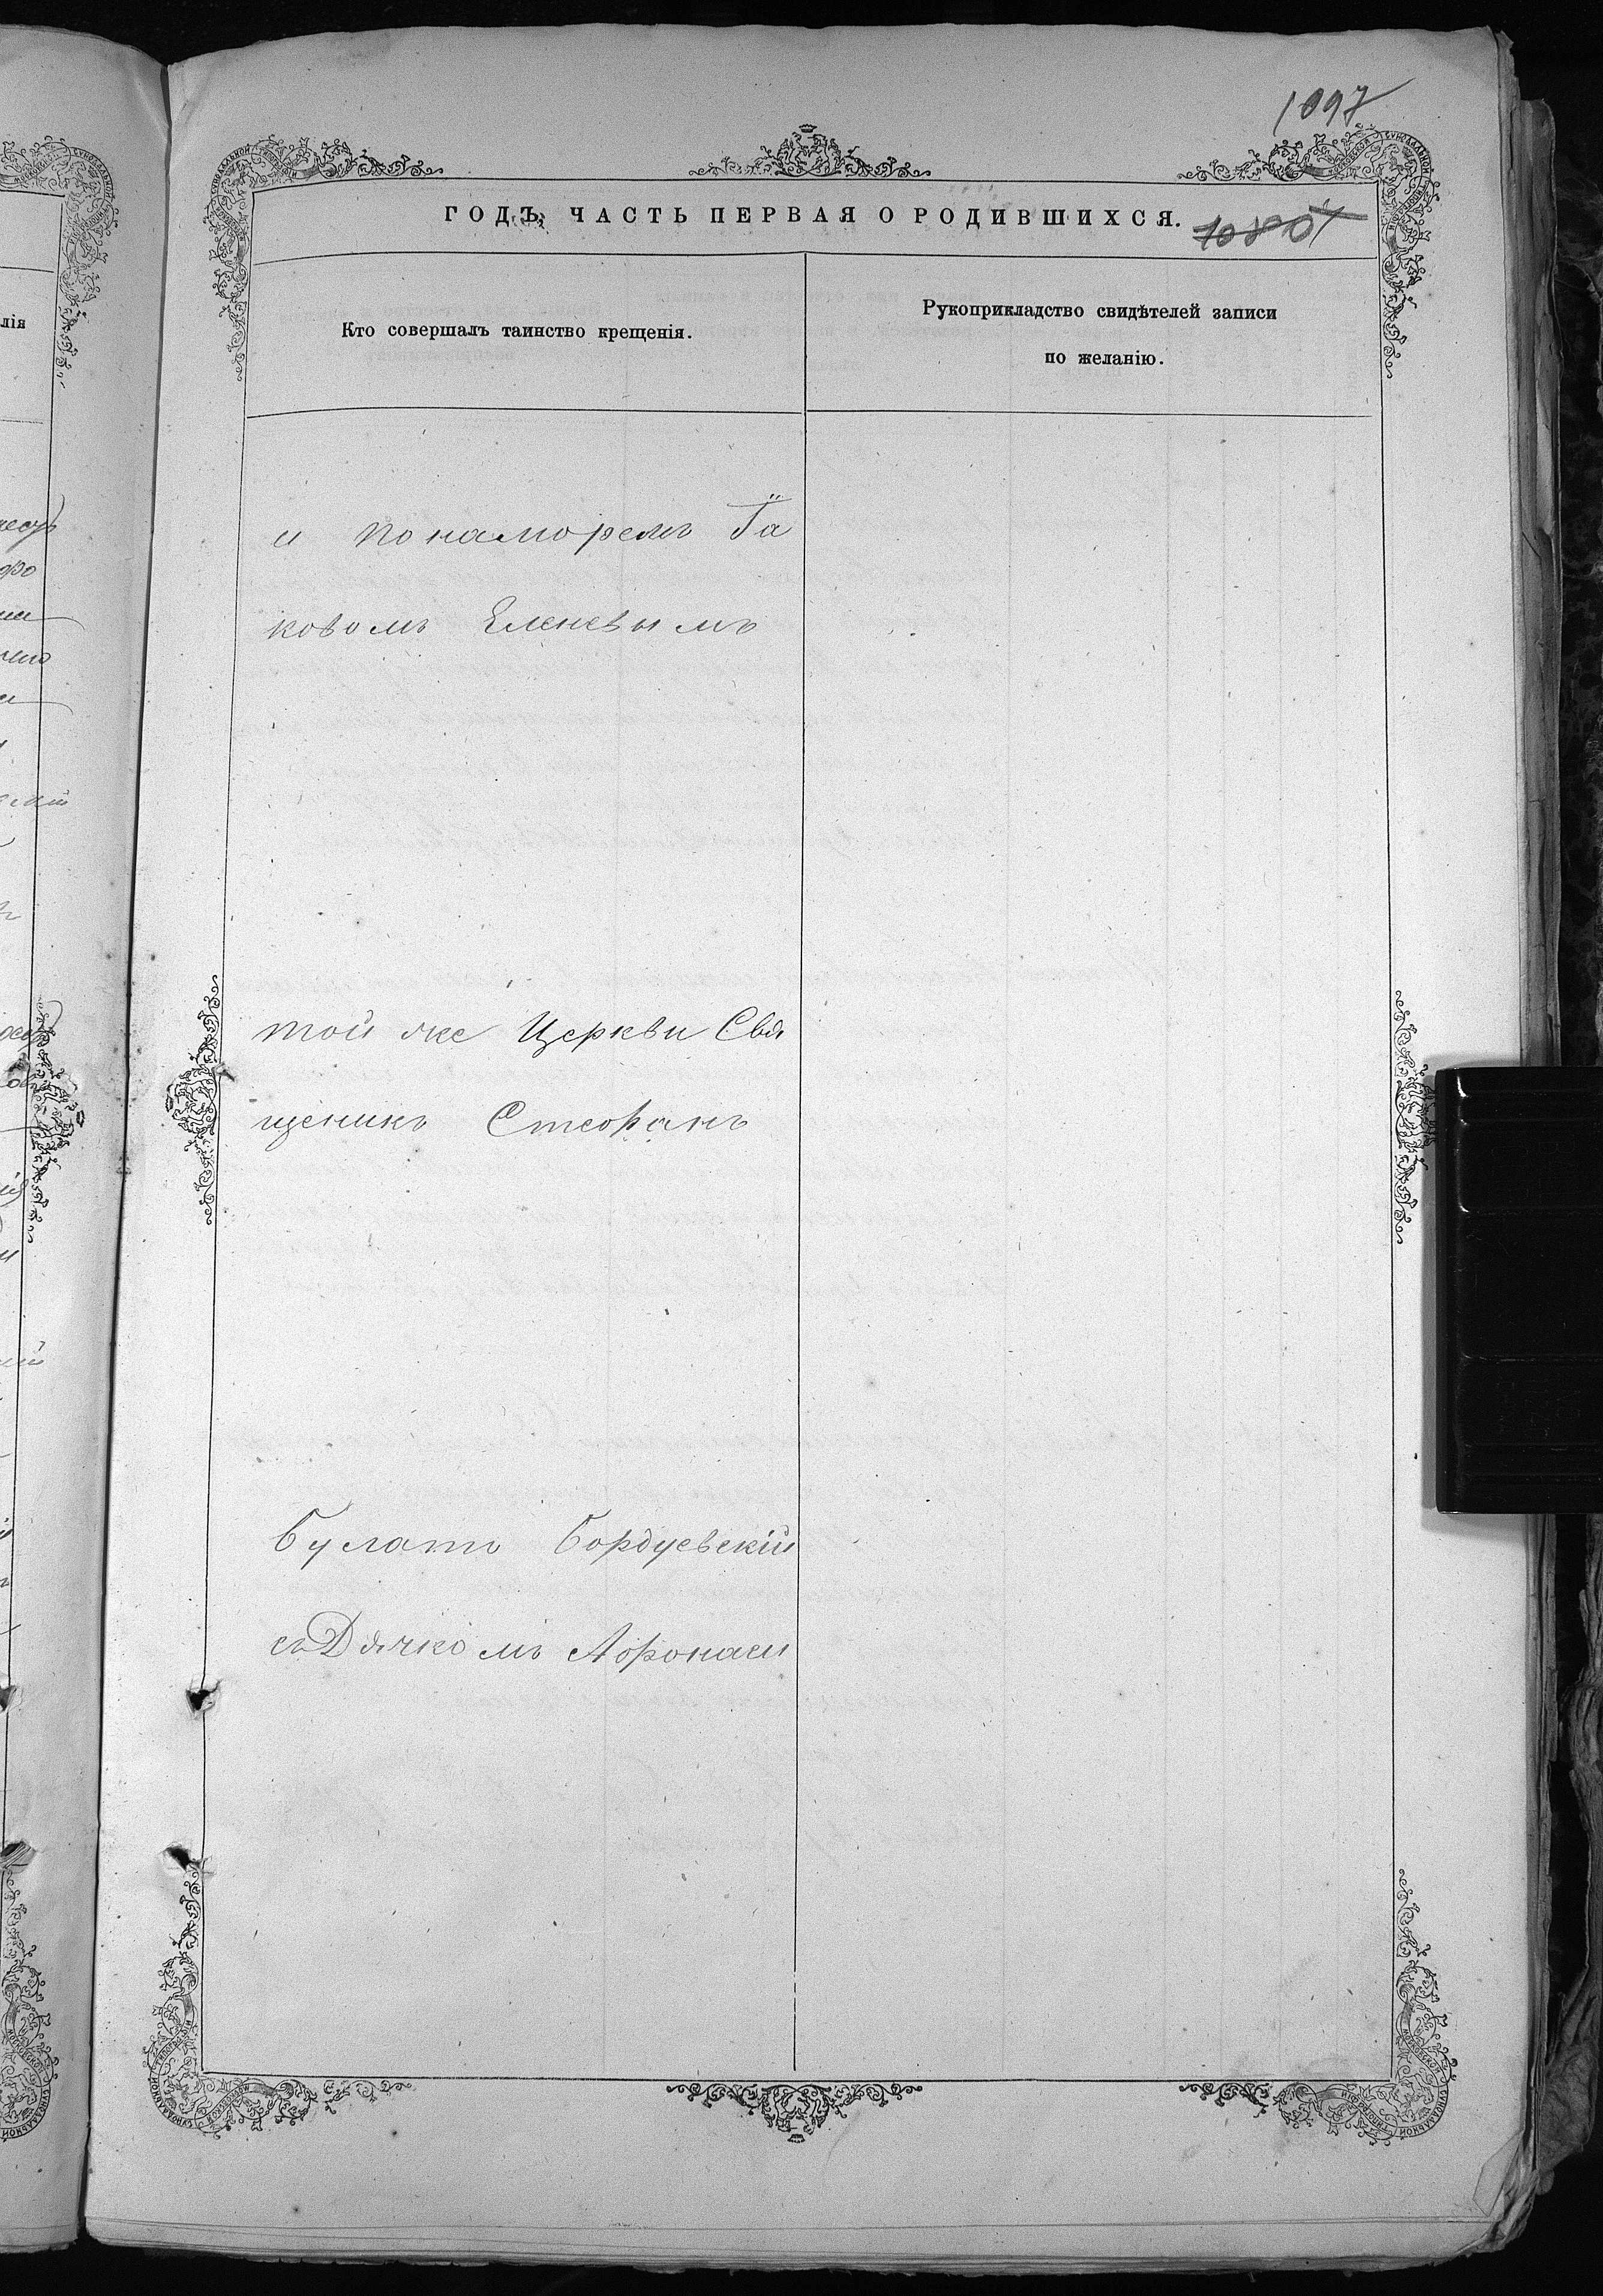 1097
ГОДЪ, ЧАСТЬ ПЕРВАЯ О РОДИВШИХСЯ.
Кто совершалъ таинство крещенія.
Рукоприкладство свидѣтелей записи
по желанію.
лія
и понаморемъ Їа
ковомъ Еленевымъ
той же Церкви Свя
щеникъ Стефанъ
Булатъ Бордуевскій
съ Дячкомъ Афонаси